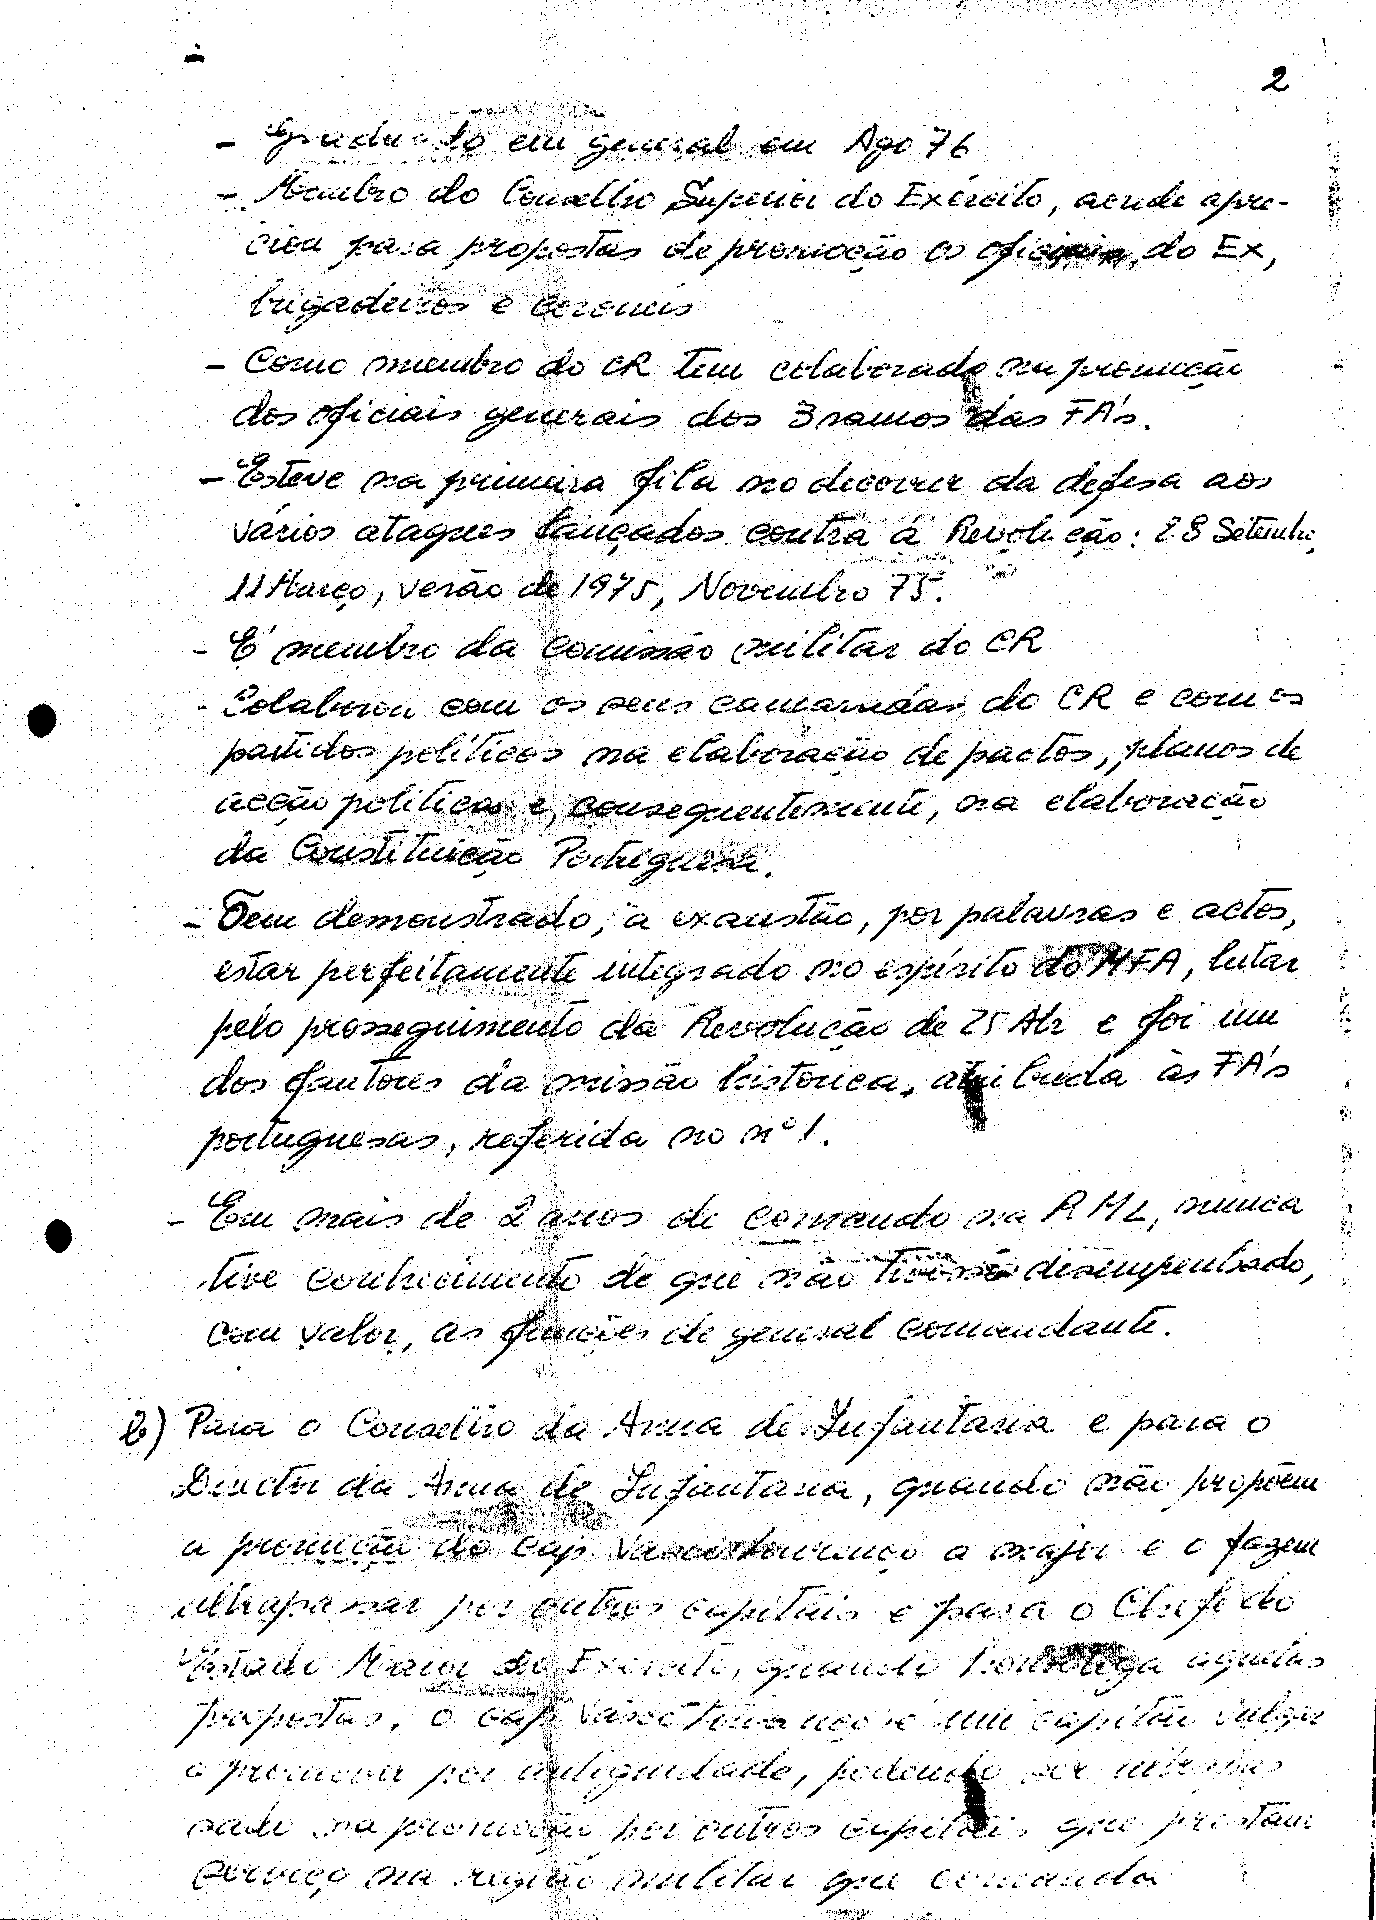 2
- Graduado em general em Ago 76
- Membro do Conselho Superior do Exército, aonde apre-
ciou para propostas de promoção os oficiais do Ex,
brigadeiros e coroneis
- Como membro do CR tem colaborado na promoção
dos oficiais generais dos 3 ramos das FA's.
- Esteve na primeira fila no decorrer da defesa aos
vários ataques lançados contra a Revolução: 28 Setembro,
11 Março, verão de 1975, Novembro 75.
- É membro da comissão militar do CR
- Colaborou com os seus camaradas do CR e com os
partidos políticos na elaboração de pactos, planos de
acção política e, consequentemente, na elaboração
da Constituição Portuguesa.
- Tem demonstrado, à exaustão, por palavras e actos,
estar perfeitamente integrado no espírito do MFA, lutar
pelo prosseguimento da Revolução de 25 Abr e foi um
dos fautores da missão histórica, atribuida às FA's
portuguesas, referida no nº 1.
- Em mais de 2 anos de comando na RML, nunca
tive conhecimento de que não tivesse desempenhado,
com valor, as funções de general comandante.
b) Para o Conselho da Arma de Infantaria e para o
Director da Arma de Infantaria, quando não propõem
a promoção do cap Vasco Lourenço a major e o fazem
ultrapassar por outros capitães e para o Chefe do
Estado Maior do Exército, quando homologa aquelas
propostas, o cap Vasco Lourenço é um capitão vulgar
a promover por antiguidade, podendo ser ultrapas
sado na promoção por outros capitães que prestam
serviço na região militar que comanda